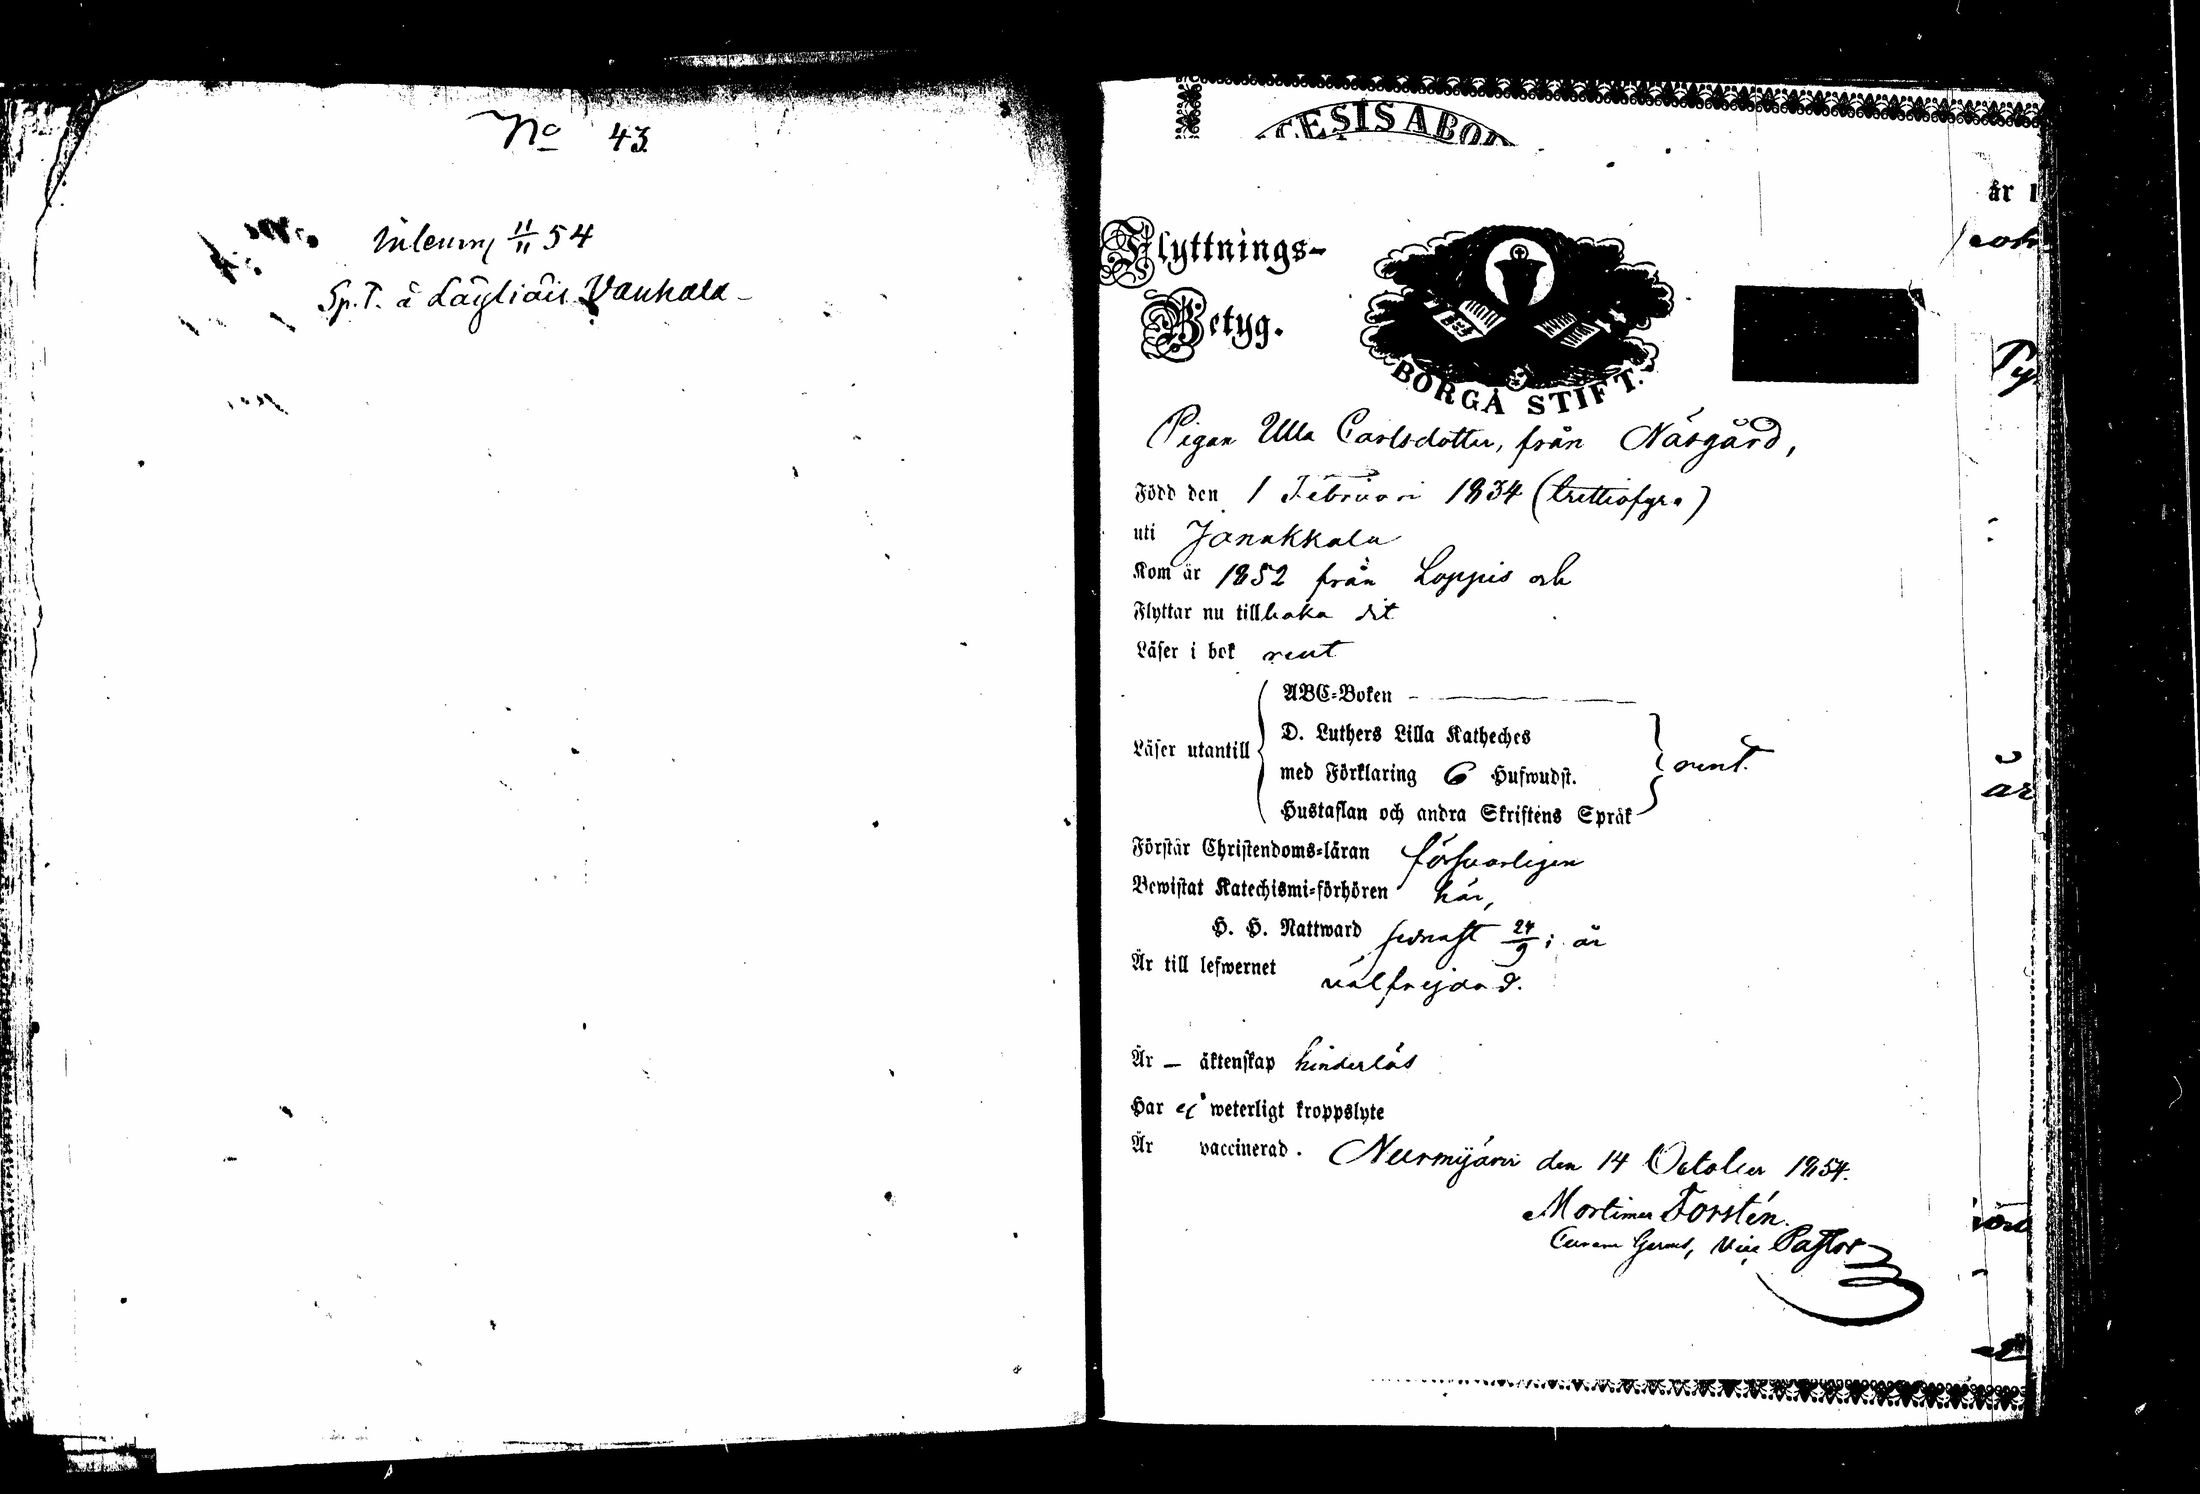 No 43.
Inlemn. 11/11 54
Sp. T. å Läyliäis Vanhala
CESIS ABO
Flyttnings-
Betyg.
BORGÅ STIFT.
Pigan Ulla Carlsdotter, från Näsgård,
Född den 1 Februari 1834 (trettiofyra)
uti Janakkala
Kom år 1852 från Loppis och
Flyttar nu tillbaka dit
Läser i bok rent
ABC-Boken
D. Luthers Lilla Katheches
Läser utantill
med Förklaring 6 Hufwudst.
rent.
Hustaflan och andra Skriftens Språk
Förstår Christendoms-läran försvarligen
Bewistat Katechismi-förhören här,
H. H. Nattward sednast 24/9 i år
Är till lefwernet välfrejdad.
Är – äktenskap hinderlös
Har ej weterligt kroppslyte
Är vaccinerad. Nurmijärvi den 14 October 1854.
Mortimer Forstén.
Curam Gerens, Vice Pastor
år 1